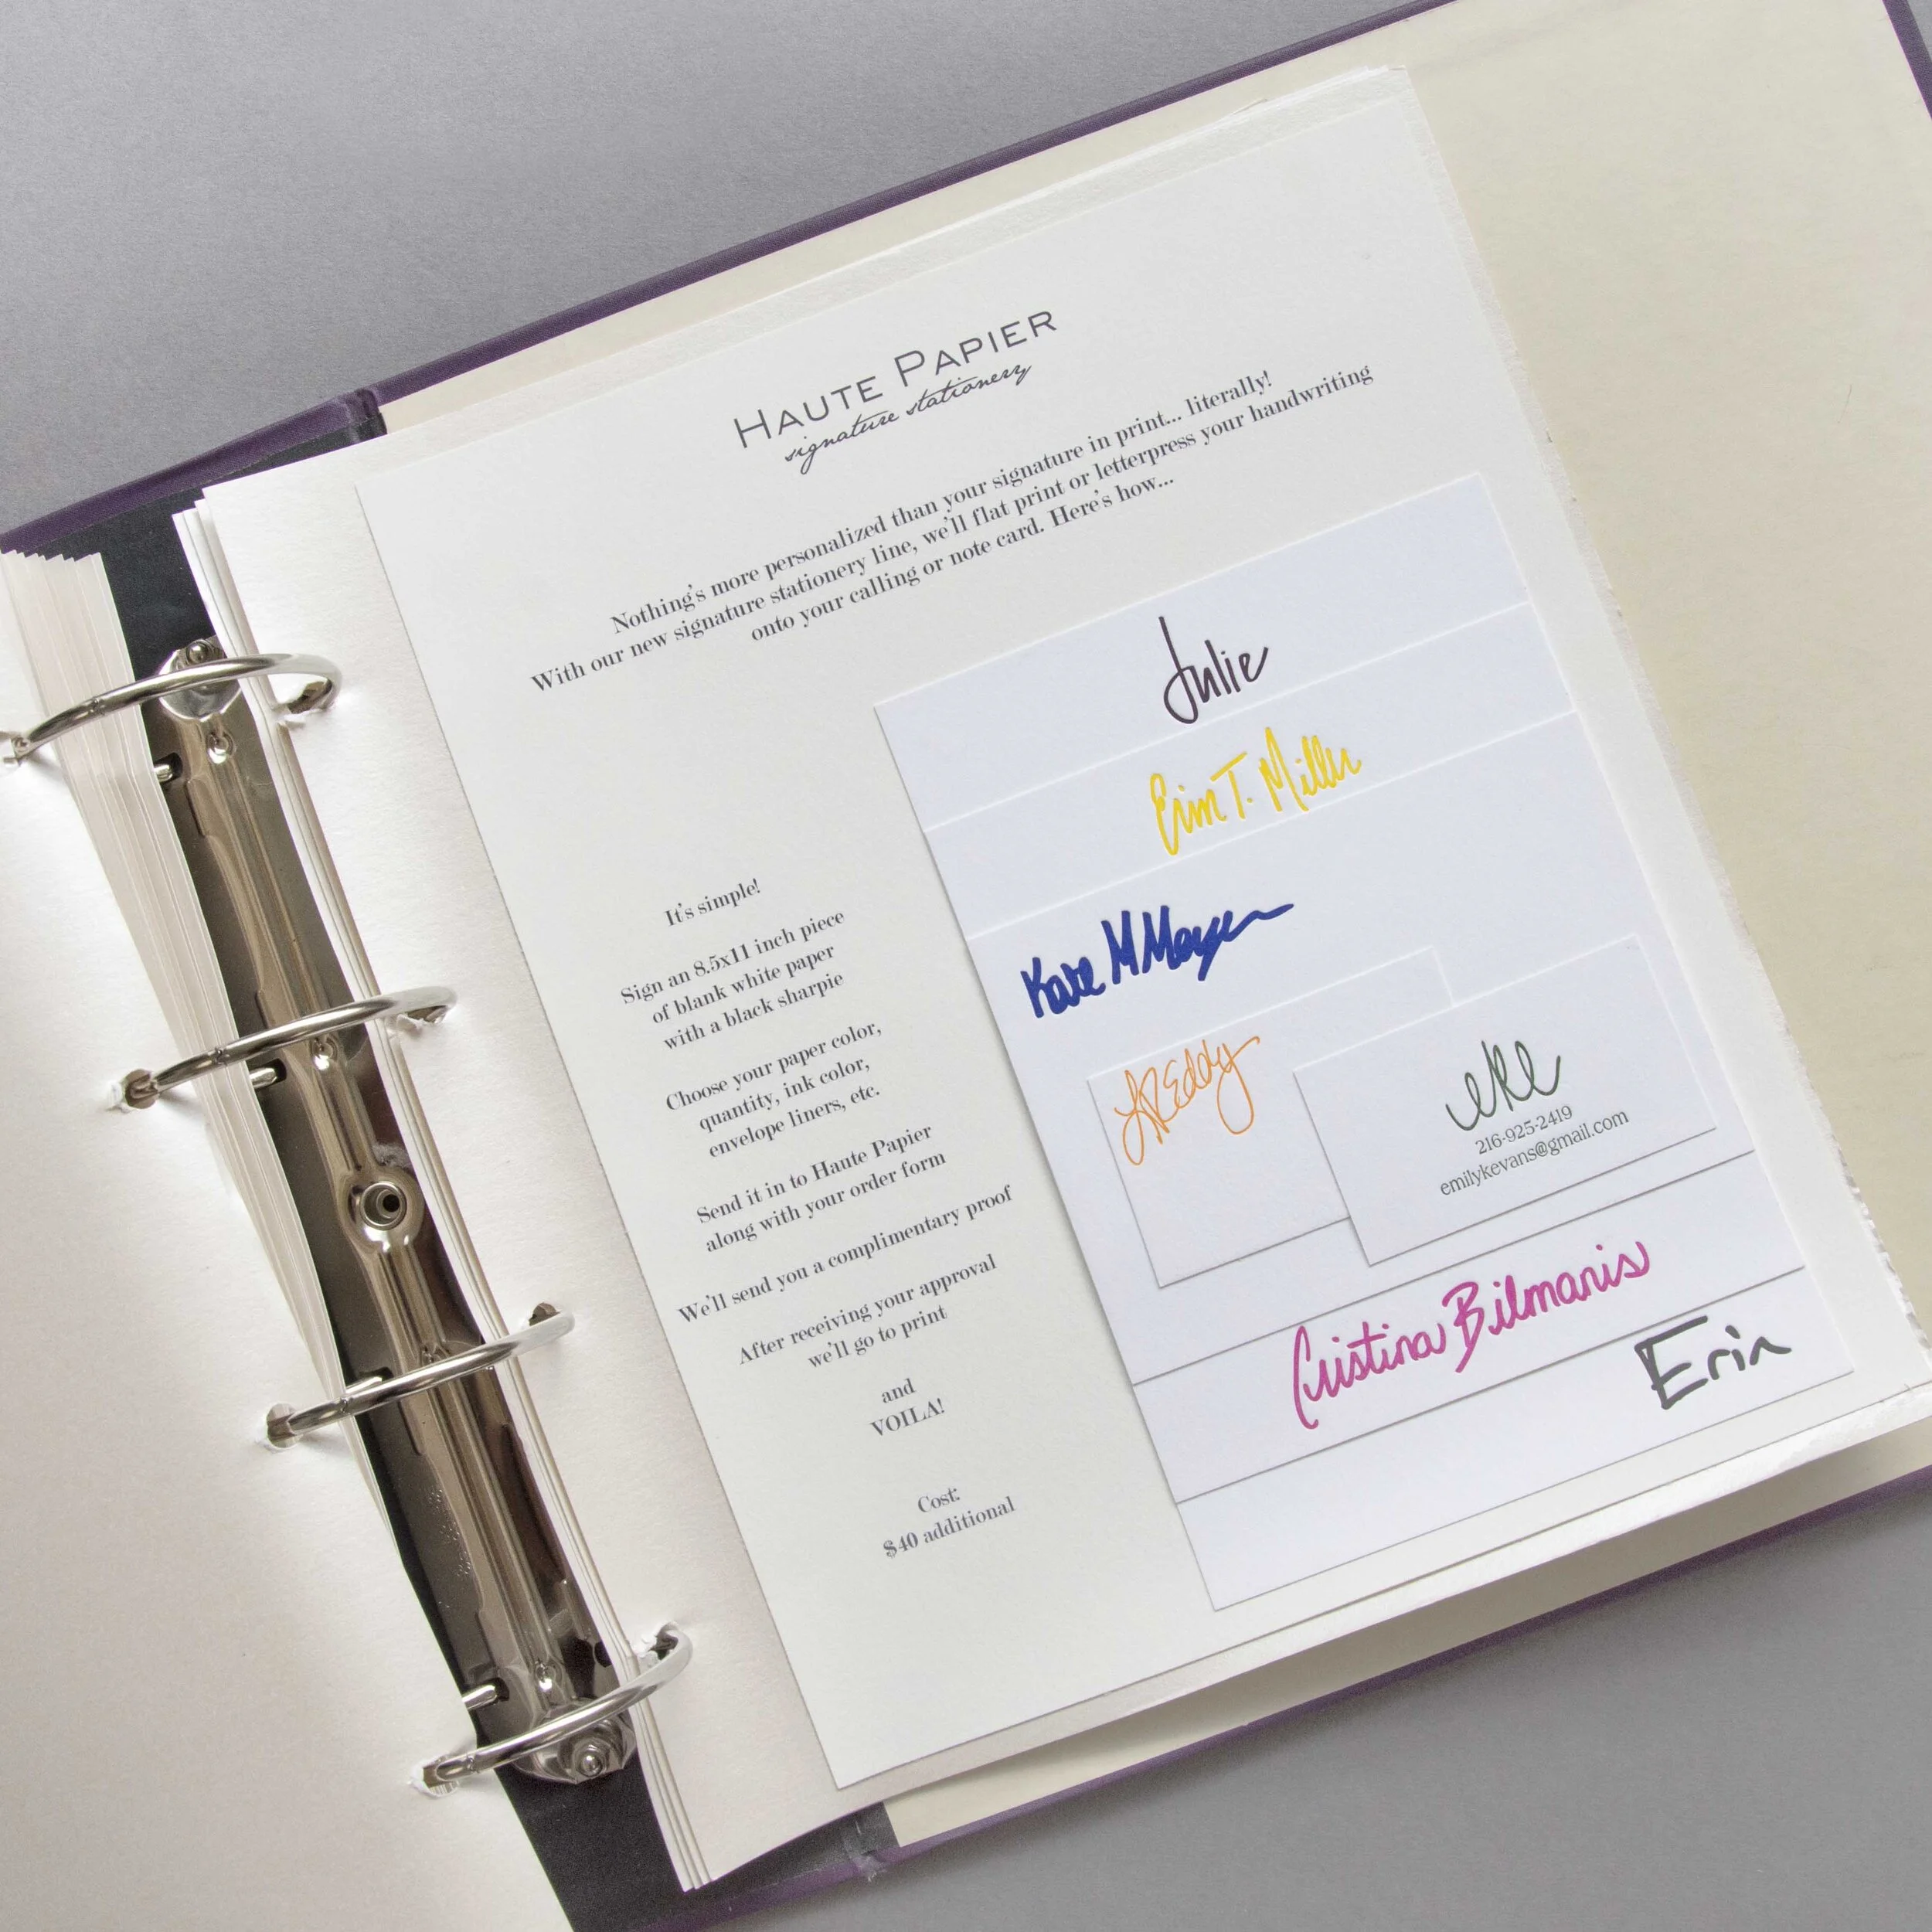 HAUTE PAPIER
signature stationery
Nothing's more personalized than your signature in print... literally!
With our new signature stationery line, we'll flat print or letterpress your handwriting
onto your calling or note card. Here's how...
It's simple!
Sign an 8.5x11 inch piece
of blank white paper
with a black sharpie
Choose your paper color,
quantity, ink color,
envelope liners, etc.
Send it in to Haute Papier
along with your order form
We'll send you a complimentary proof
After receiving your approval
we'll go to print
and
VOILA!
Cost:
$40 additional
Julie
Erin T. Miller
Kate M Meyer
eke
216-925-2419
emilykevans@gmail.com
Cristina Bilmanis
Erin